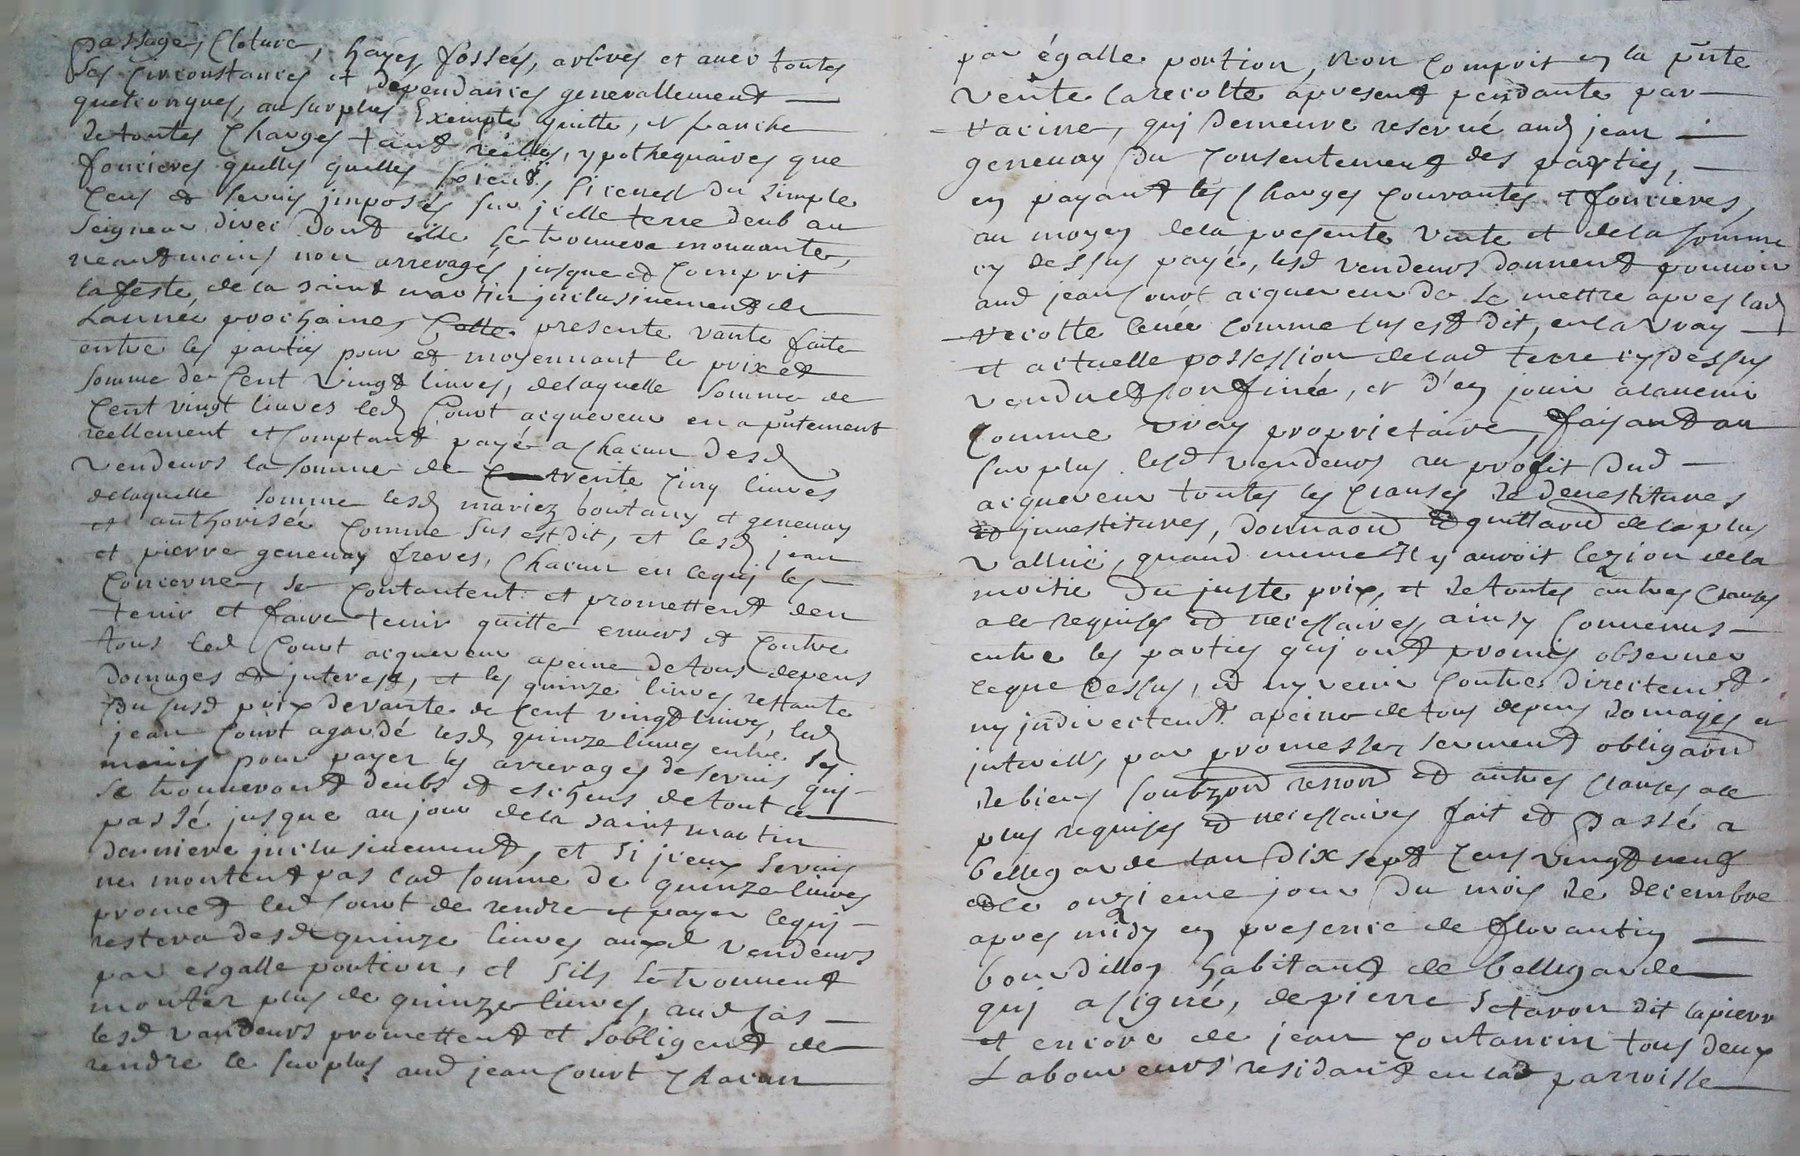 passage, cloture, hayes, fossées, arbres et avec toutes
ses circonstances et dependances generallement
quelconques, au surplus Exempte quitte, et franche
de toutes charges tant réelles, ypothequaires que
foncieres quelles quelles soient, sicenest du simple
cens et servis jmposés sur jcelle terre deub au
seigneur direc dont elle se trouvera mouvante,
neantmoins non arrerages jusque et comprit
la feste de la saint martin jnclusivement de
Lannee prochaine, Cette presente vante faite
entre les parties pour et moyennant le prix et
somme de Cent vingt livres, de laquelle somme de
Cent vingt livres led Court acquereur en a pntement
réellement et comptant payé a chacun desd
vendeurs la somme de trente cinq livres
delaquelle somme lesd mariez boutany et genevay
et authorisée comme sus est dit, et lesd jean
et pierre genevay freres, chacun en cequi les
concerne, se contantent et promettent den
tenir et faire tenir quitte envers et contre
tous led Court acquereur apeine de tous depens
domages et jnterest, et les quinze livres restante
du susd prix devante de Cent vingt livres, led
jean Court agardé lesd quinze livres entre ses
mains pour payer les arrerages de servis quj
se trouveront deubs et eschens de tout le
passé jusque au jour de la saint martin
derniere jnclusivement, et si jceux servis
ne montent pas lad somme de quinze livres
promet led Court de rendre et payer cequj
restera desd quinze livres auxd vendeurs
par esgalle portion, et sils se trouvent
monter plus de quinze livres, aud cas
lesd vandeurs promettent et sobligent de
rendre le surplus aud jean Court chacun
par égalle portion, Non comprit en la pnte
vente la recolte apresent pendante par
racine, quj demeure reservé aud jean
genevay du consentement des parties,
en payant les charges courantes et foncieres,
au moyen de la presente vente et de la somme
cy dessus payé, lesd vendeurs donnent pouvoir
aud jean Court acquereur de se mettre apres lad
recolte levée comme sus est dit, en la vray
et actuelle possession de lad terre cy dessus
vendue et confinée, et d'en jouir alavenir
Comme vray proprietaire, faisant au
surplus lesd vendeurs au profit dud
acquereur toutes les clauses de devestitures
et jnvestitures, donnaon et quittaon de la plus
vallué, quand meme Il y auroit lezion de la
moitié du juste prix, et de toutes autres clauses
ace requises et necessaires, ainsy convenus
entre les parties quj ont promis observer
ceque dessus, et ny venir contre directemt
ny jndirectemt apeine de tous depens domages et
jnterests par promesses serment obligaon
de biens soubzon renon et autres clauses ace
plus requises et necessaires fait et passé a
bellegarde lan dix sept cens vingt neuf
et le onzieme jour du mois de decembre
apres midy en presence de florantin
bourdillon habitant de bellegarde
quj a signé, de pierre dit lapierre
et encore de jean coutancin tous deux
Laboureurs residant en lad parroisse